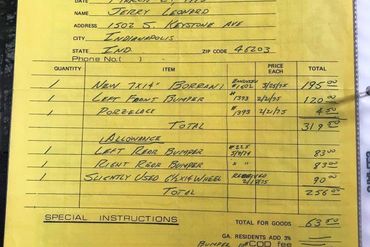 NAME Jerry Leonard
ADDRESS 1502 S. Keystone Ave
CITY Indianapolis
STATE Ind. ZIP CODE 46203
Phone No.( )
QUANTITY ITEM PRICE EACH TOTAL
1 New 7x14" Borrani #1602 3/25/75 195 00
1 Left Front Bumper #1393 2/21/75 120 00
1 Porzelack #1393 2/21/75 4 50
Total 319 50
Allowance
1 Left Rear Bumper 83 00
1 Right Rear Bumper " " 83 00
1 Slightly Used 6½x14 Wheel 90 00
Total 256 00
SPECIAL INSTRUCTIONS TOTAL FOR GOODS 63 50
GA. RESIDENTS ADD 3%
Bumper COD fee